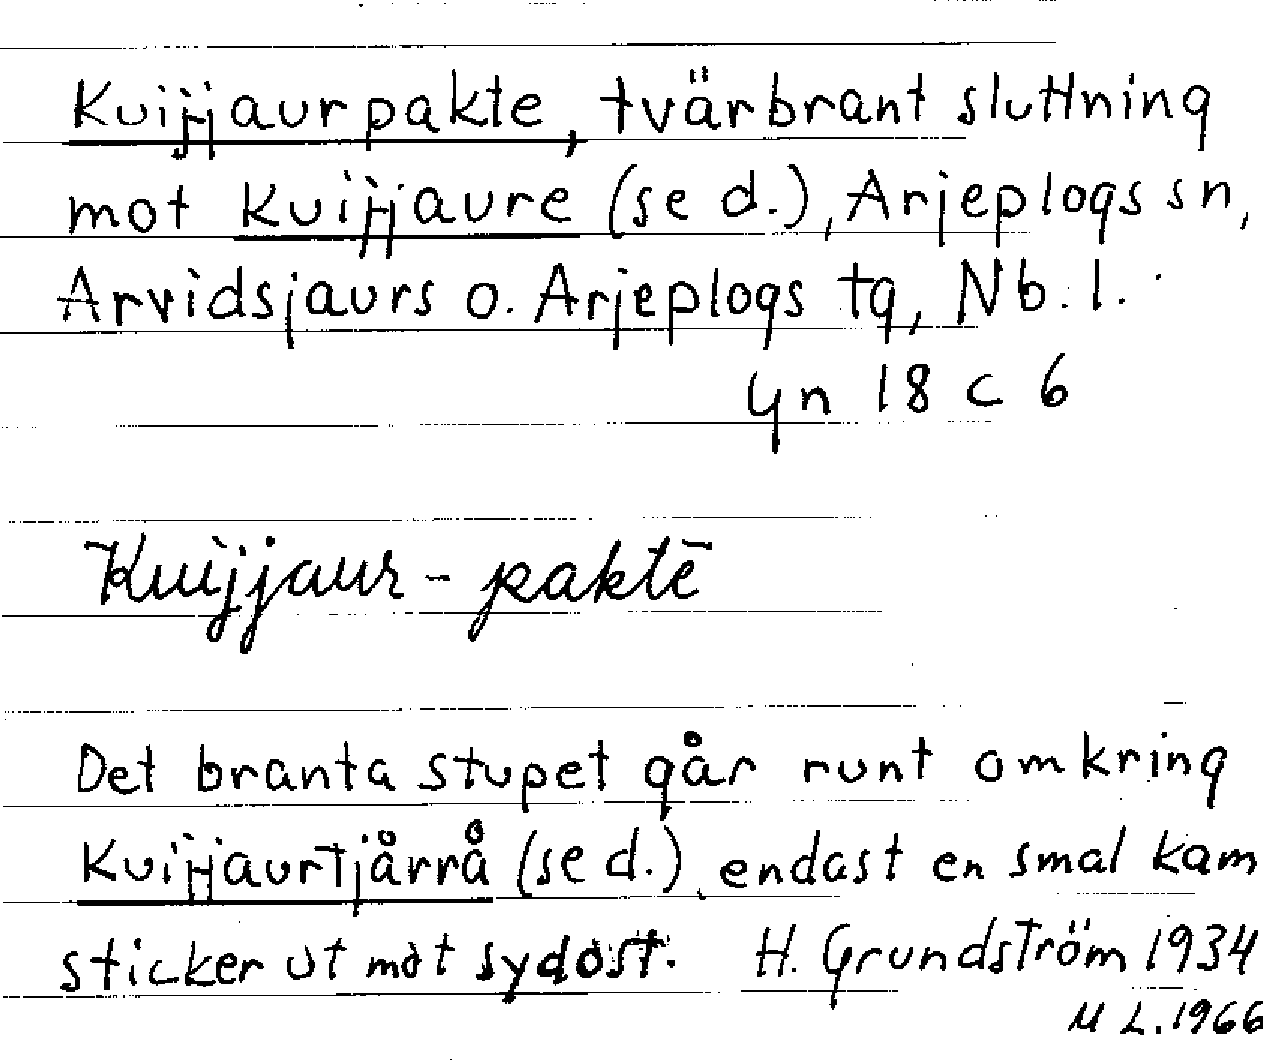 Kuijjaurpakte, tvärbrant sluttning
mot Kuijjaure (se d.), Arjeplogs sn,
Arvidsjaurs o. Arjeplogs tg, Nb. l.
Gn 18 c 6
Kuijjaur-paktē
Det branta stupet går runt omkring
Kuijjaurtjårrå (se d.), endast en smal kam
sticker ut mot sydost. H. Grundström 1934
M L. 1966